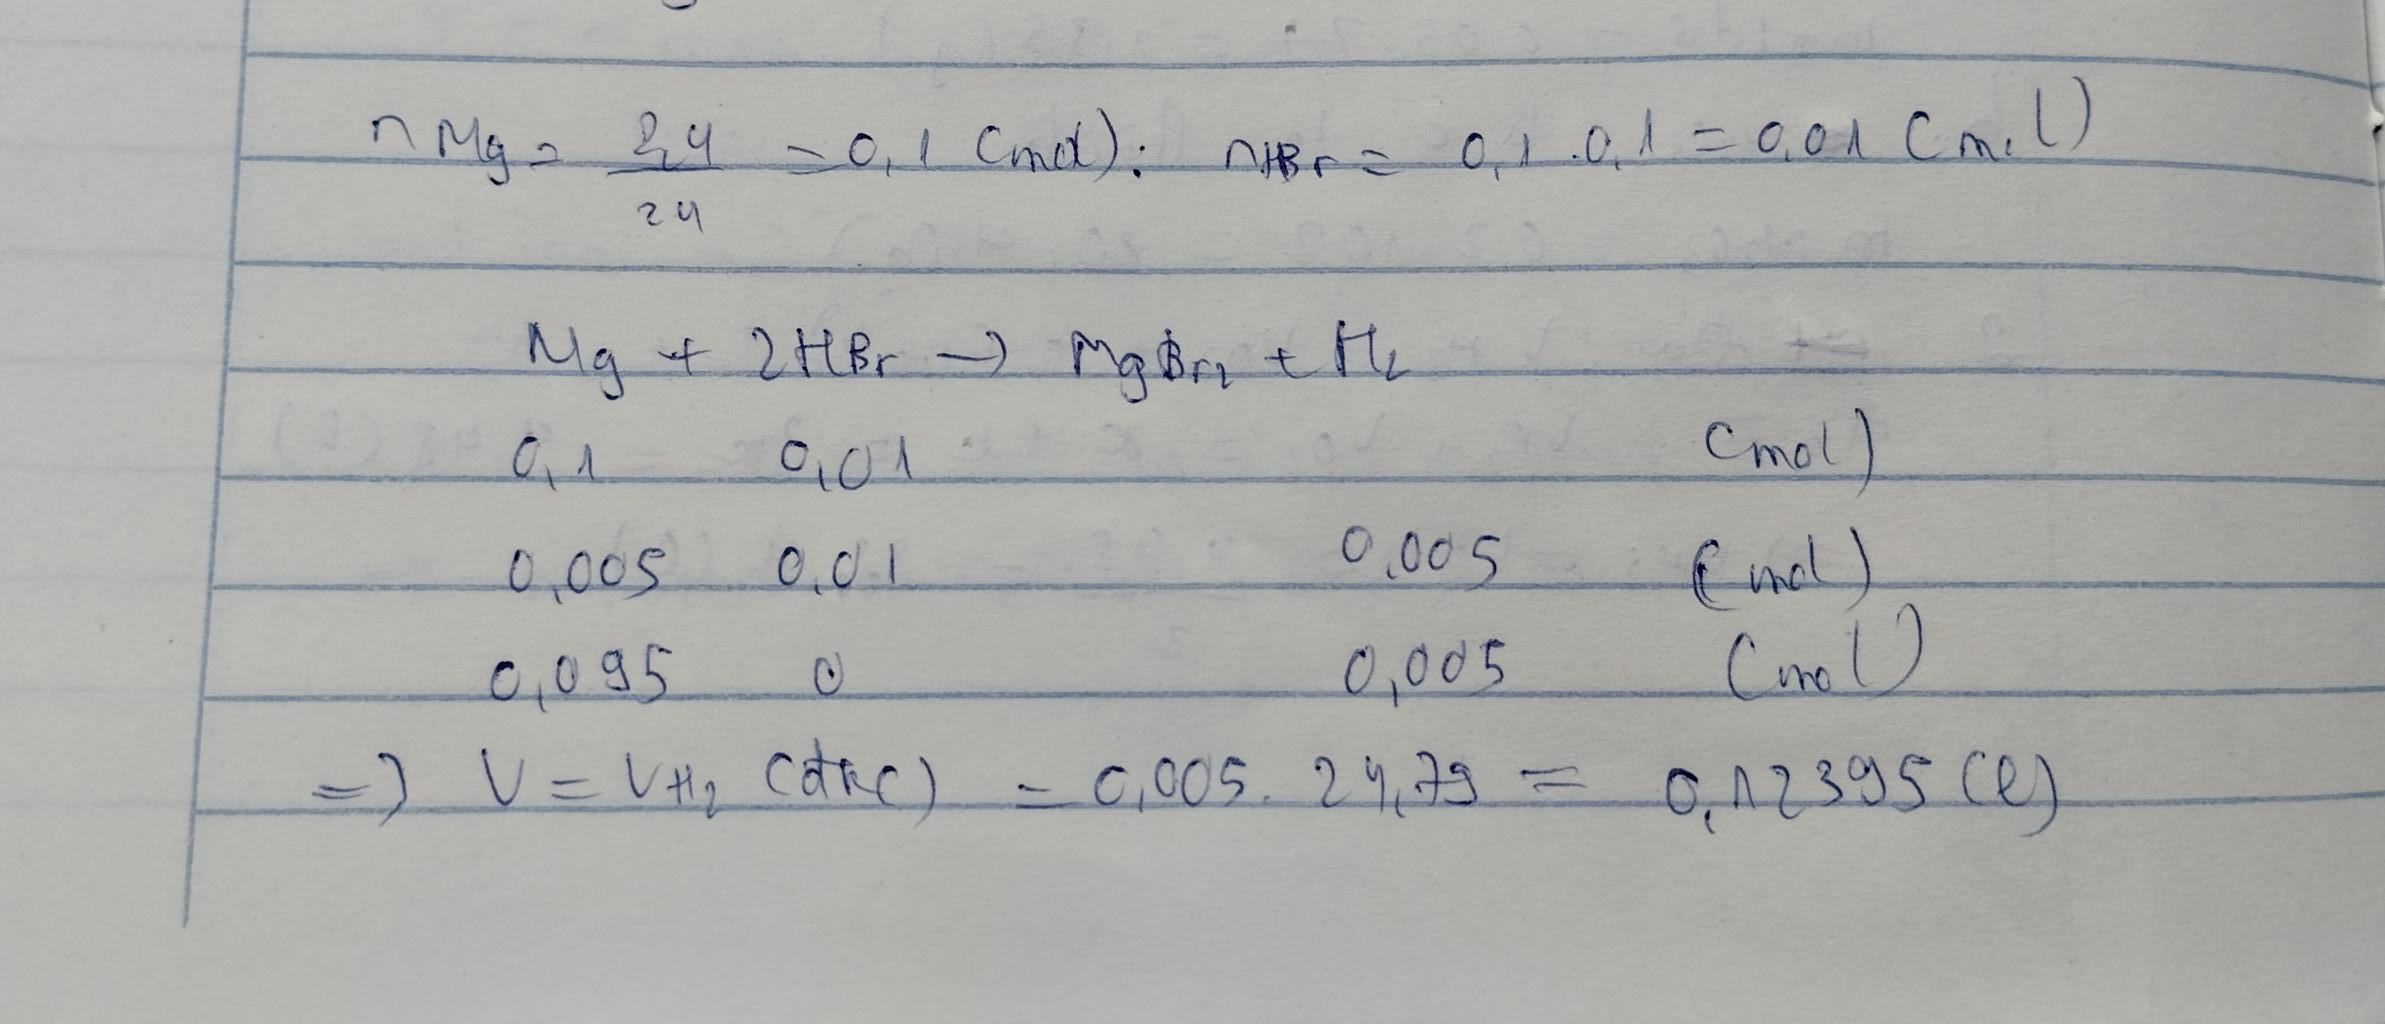 nMg = 2,4/24 = 0,1 (mol); nHBr = 0,1 . 0,1 = 0,01 (mol)
Mg + 2HBr → MgBr₂ + H₂
0,1 0,01 (mol)
0,005 0,01 0,005 (mol)
0,095 0 0,005 (mol)
=> V = VH₂ (đkc) = 0,005 . 24,79 = 0,12395 (l)